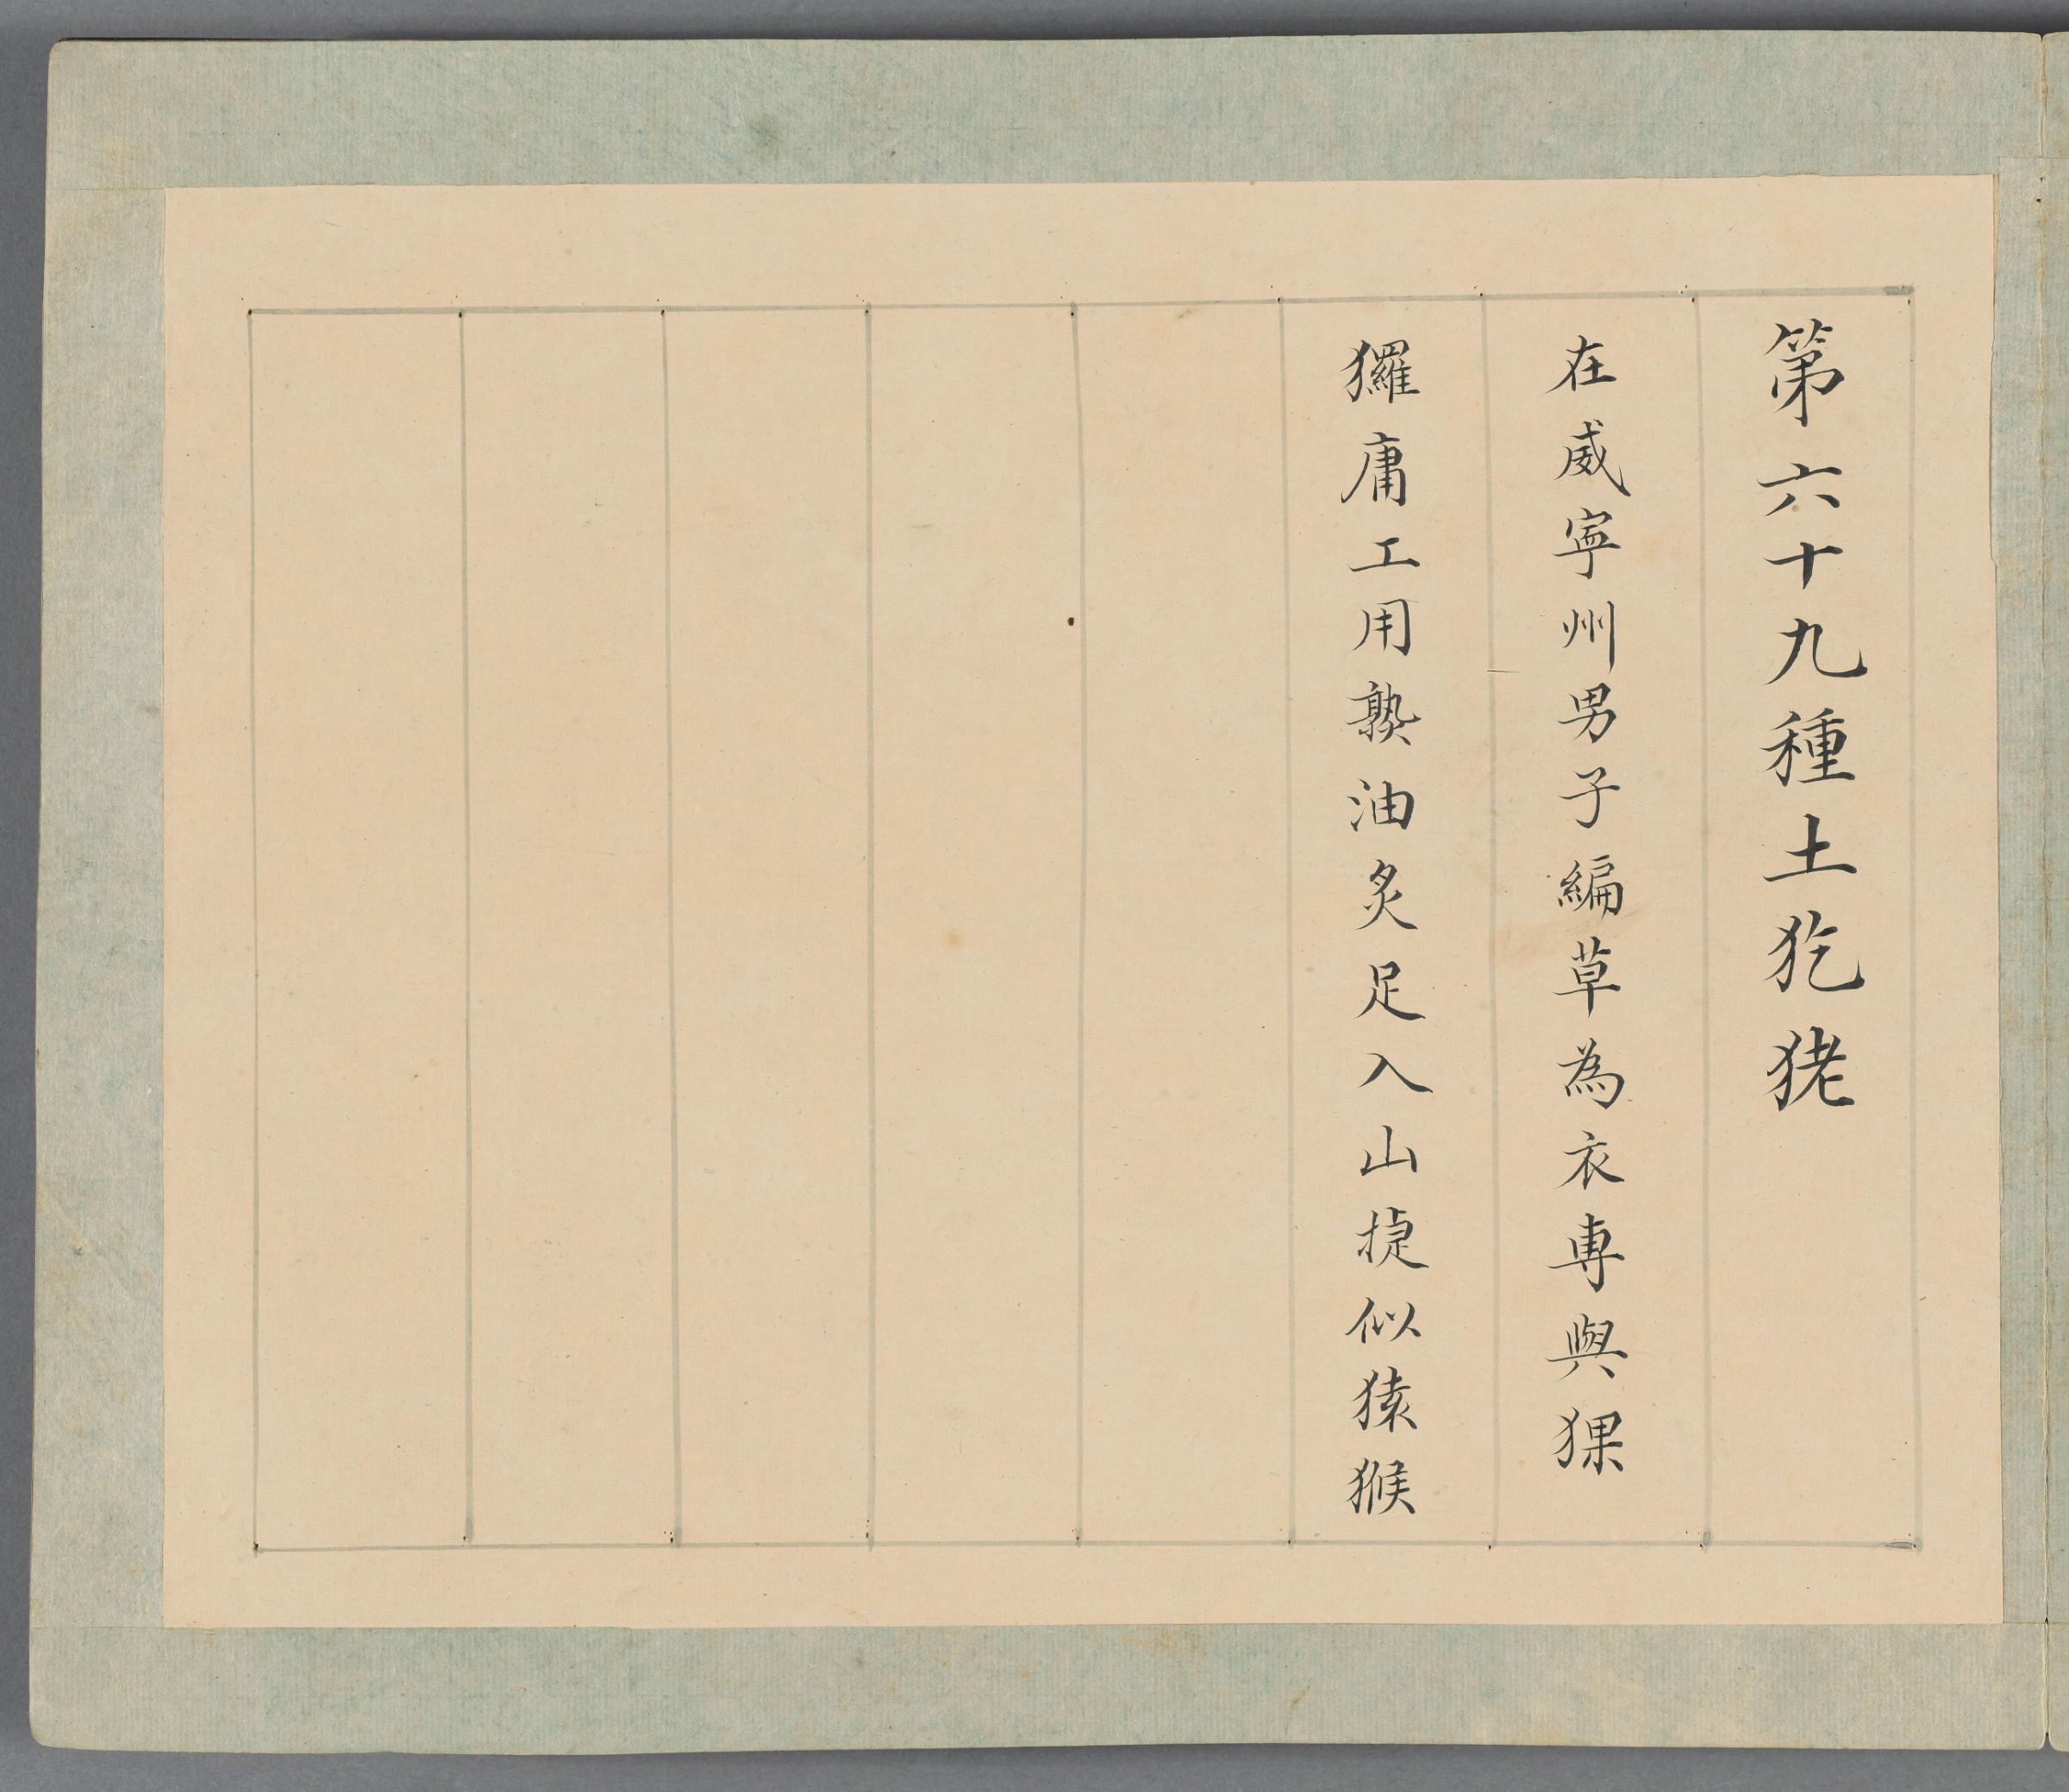 第六十九種土犵狫
在威寕州男子編草為衣專與猓
玀庸工用熟油炙足入山捷似猿猴